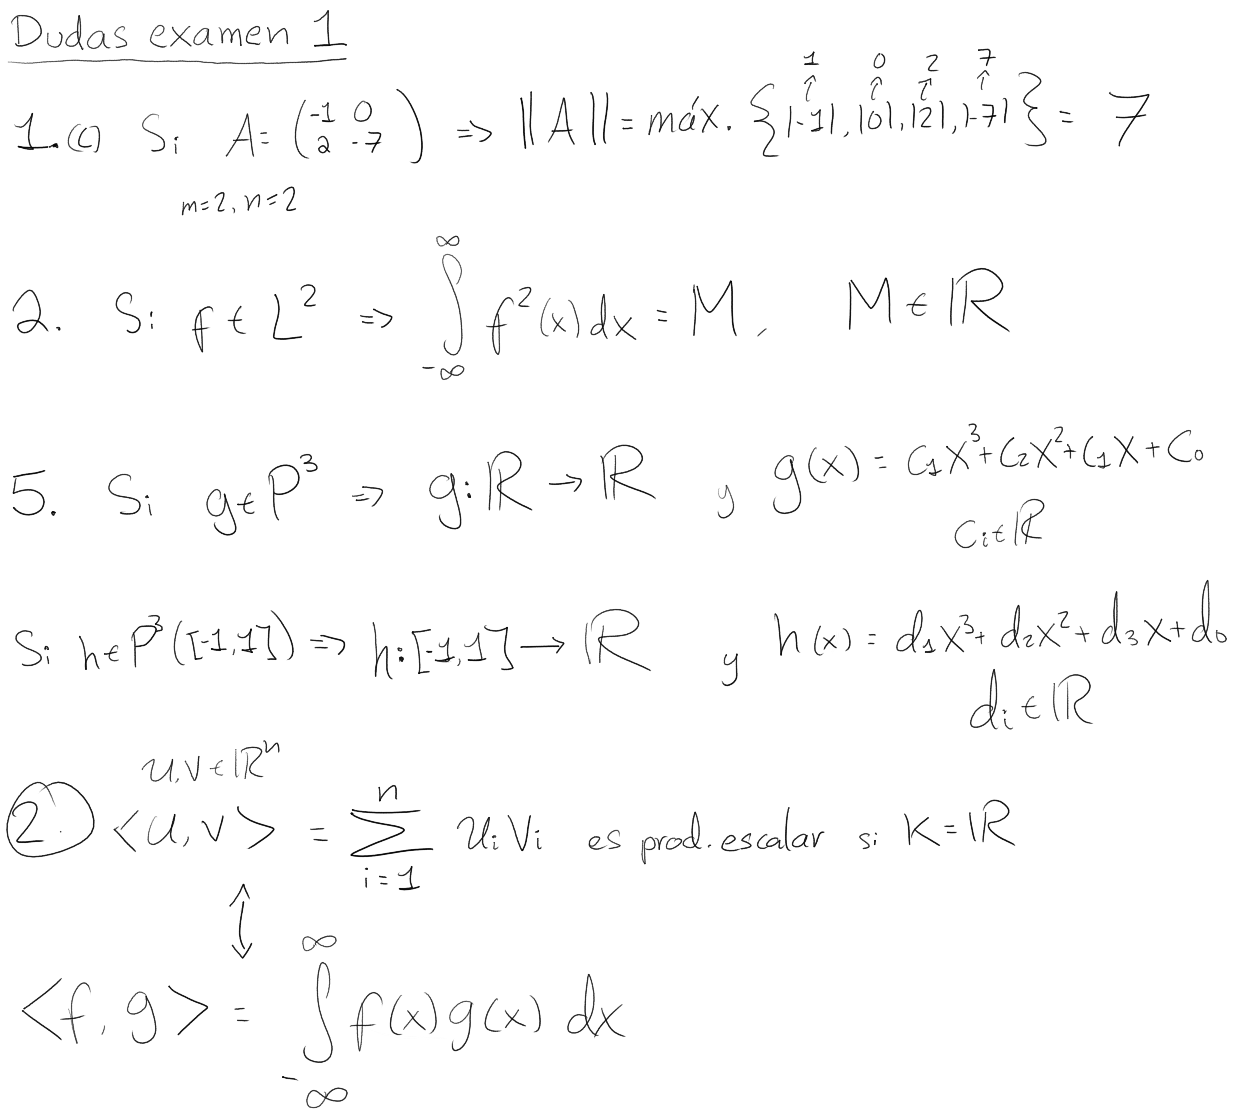 Dudas examen 1
1.(c) Si A = (-1 0 / 2 -7) => ||A|| = máx. {|-1|, |0|, |2|, |-7|} = 7
1 0 2 7
m=2, n=2
2. Si f ∈ L² => ∫_{-∞}^{∞} f²(x) dx = M, M ∈ ℝ
5. Si g ∈ P³ => g: ℝ → ℝ y g(x) = c₁x³ + c₂x² + c₁x + c₀
cᵢ ∈ ℝ
Si h ∈ P³([-1,1]) => h: [-1,1] → ℝ y h(x) = d₁x³ + d₂x² + d₃x + d₀
dᵢ ∈ ℝ
u,v ∈ ℝⁿ
2. <u,v> = ∑_{i=1}^{n} uᵢvᵢ es prod. escalar si K = ℝ
↕
<f,g> = ∫_{-∞}^{∞} f(x)g(x) dx